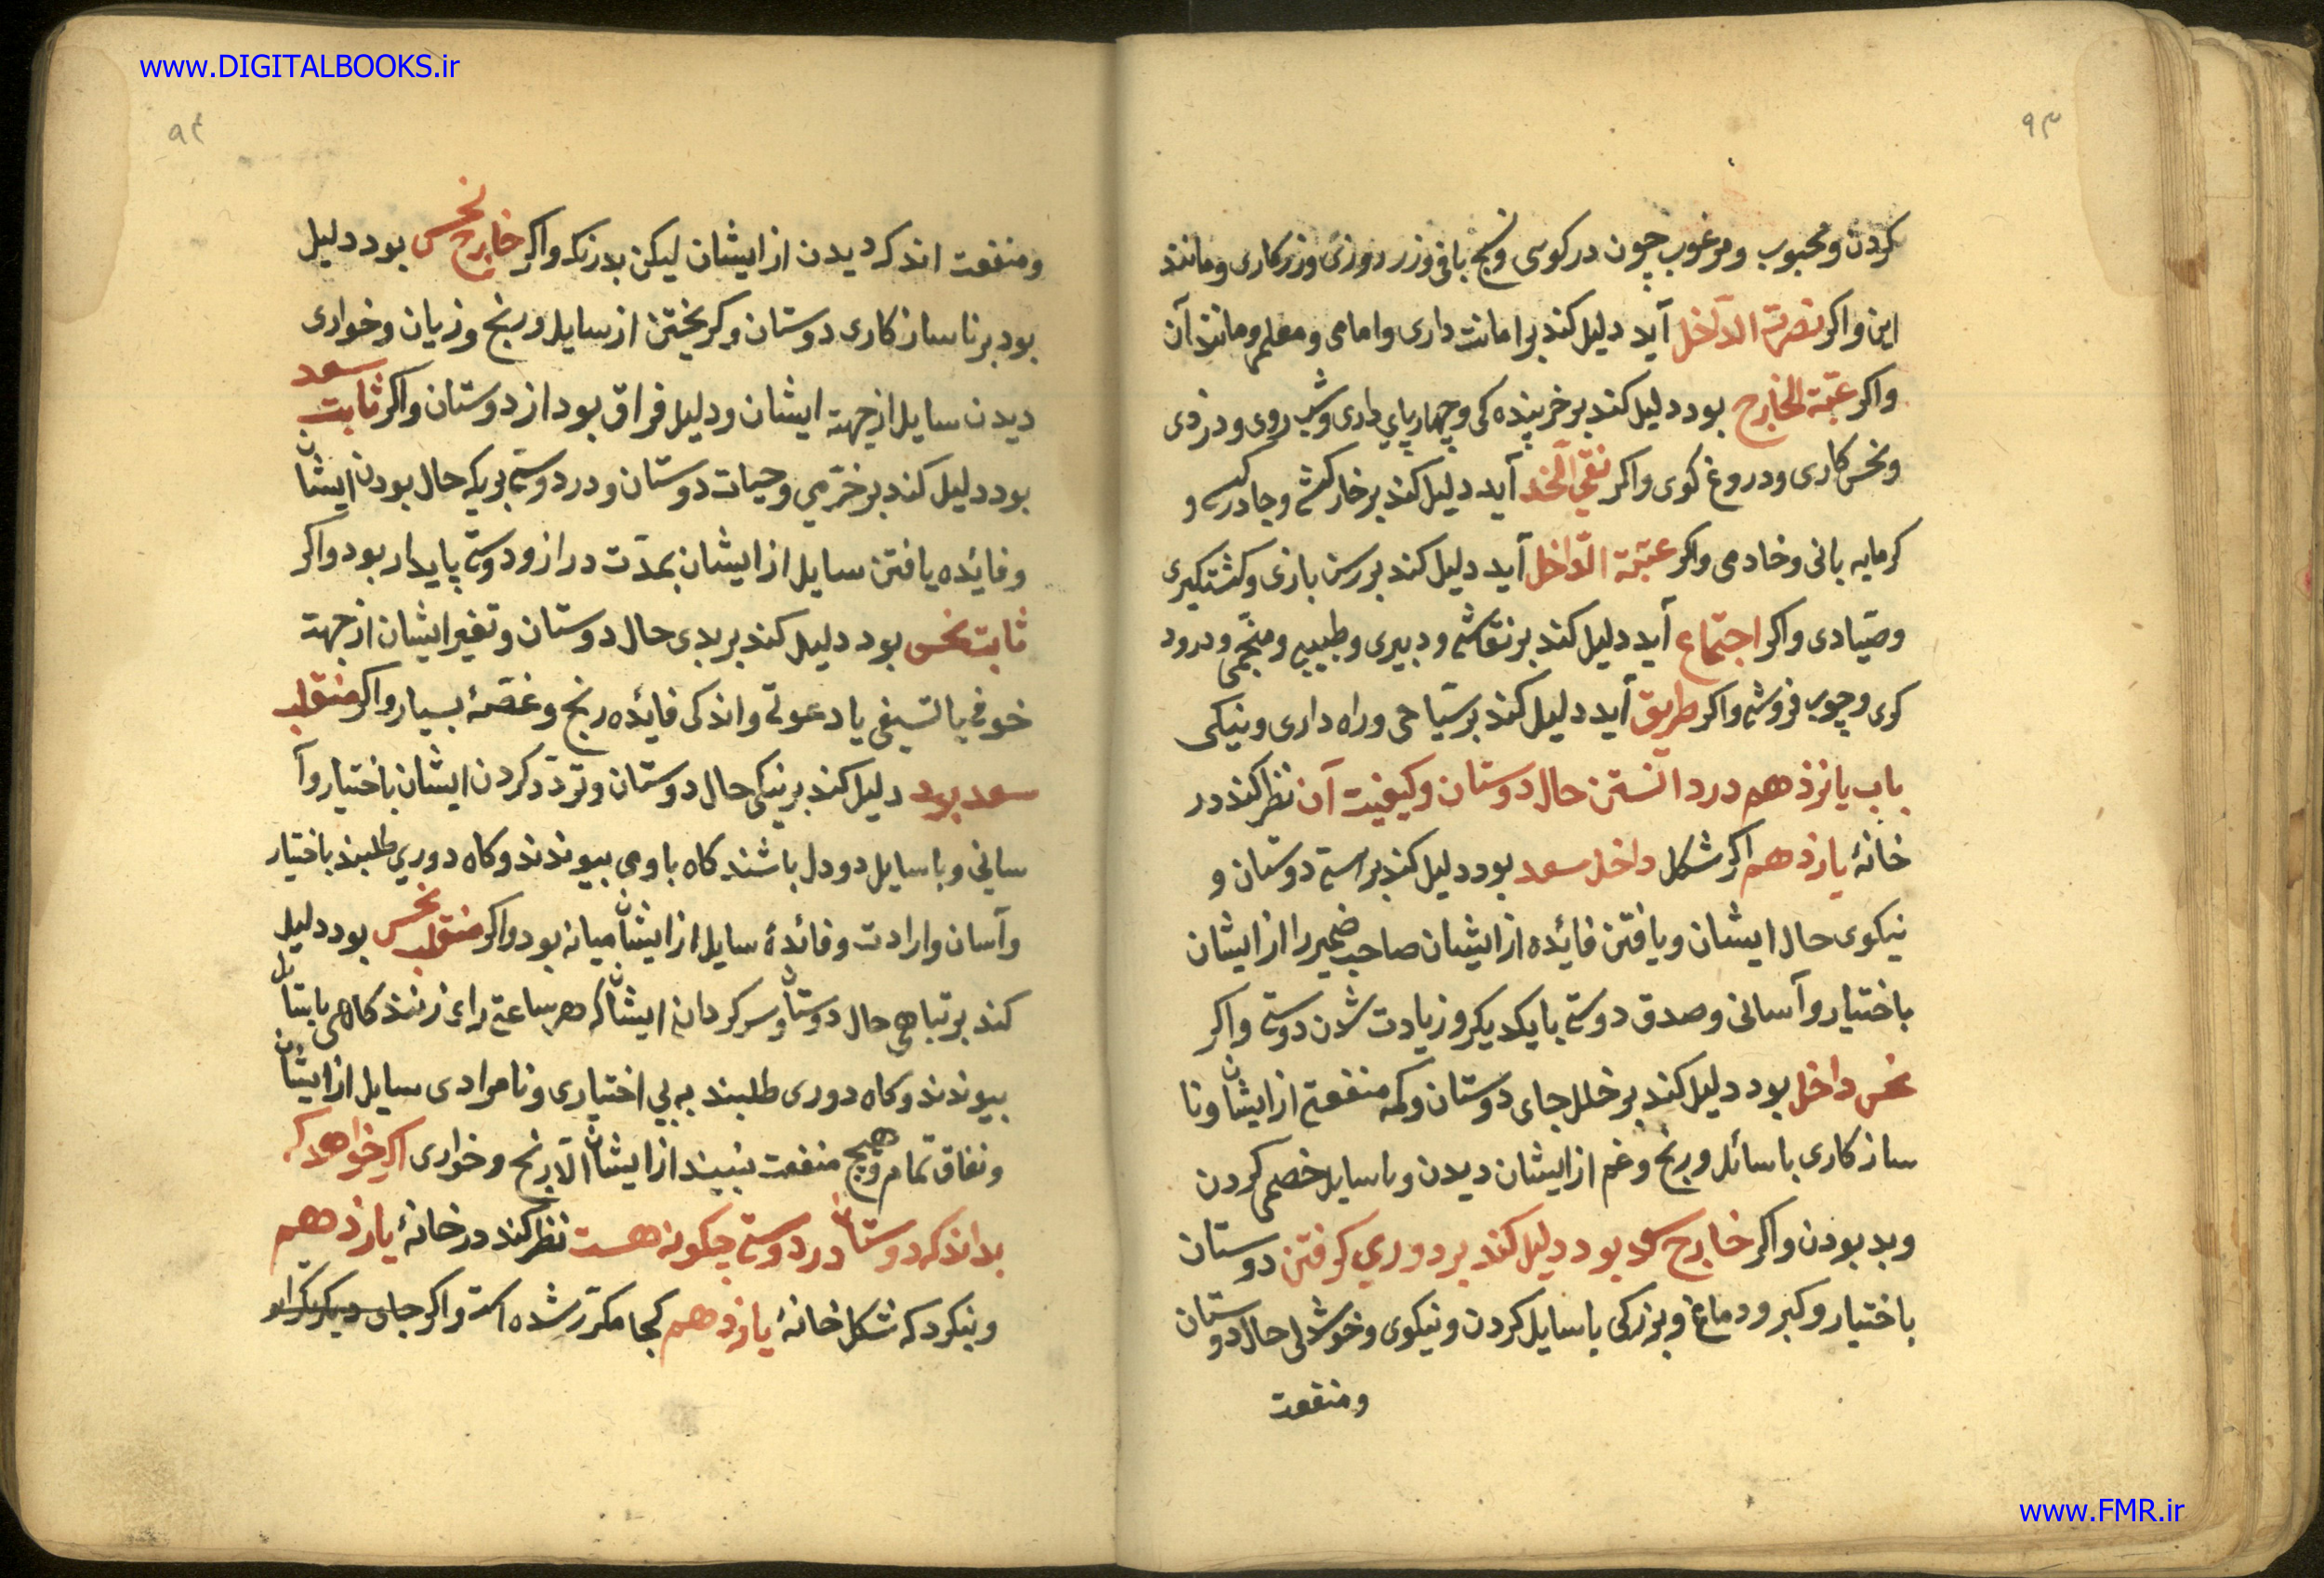 www.DIGITALBOOKS.ir
۹۳
کردن و محبوب و مرغوب چون درکوسی و نسج بافی و زر دوزی و زرکاری و مانند
این و اکر نصرة الداخل آید دلیل کند بر امانت داری و امامی و معلمی و مانند آن
و اکر عتبة الخارج بود دلیل کند بر خربنده کی و چهارپای داری و شب روی و دزدی
و نحس کاری و دروغ کوی و اکر نقی الخد آید دلیل کند بر خارکشی و جادرکسی و
کرمابه بانی و خادمی و اکر عتبة الداخل آید دلیل کند بر رسن بازی و کشتکیری
و صیادی و اکر اجتماع آید دلیل کند بر نقاشی و دبیری و طبیبی و منجمی و درود
کری و چوب فروشی و اکر طریق آید دلیل کند بر سیاحی و راه داری و نیکی
باب یانزدهم در دانستن حال دوستان و کیفیت آن نظر کند در
خانهٔ یازدهم اکر شکل داخل سعد بود دلیل کند بر راستی دوستان و
نیکوی حال ایشان و یافتن فائده از ایشان صاحب ضمیر را از ایشان
باختیار و آسانی و صدق دوستی با یکدیکر و زیادت شدن دوستی و اکر
نحس داخل بود دلیل کند بر خلل جای دوستان و کم منفعتی از ایشان و نا
سازکاری با سائل و رنج و غم از ایشان دیدن و با سایل خصمی کردن
و بد بودن و اکر خارج سعد بود دلیل کند بر دوری کرفتن دوستان
باختیار و کبر و دماغ و بزرکی با سایل کردن و نیکوی و خوشدلی حال دوستان
و منفعت
۹٤
و منفعت اندک دیدن از ایشان لیکن بدرنک و اکر خارج نحس بود دلیل
بود بر ناسازکاری دوستان و کریختن از سایل و رنج و زیان و خواری
دیدن سایل از جهة ایشان و دلیل فراق بود از دوستان و اکر ثابت سعد
بود دلیل کند بر خرمی و حیات دوستان و در دوستی بر یک حال بودن ایشان
و فائده یافتن سایل از ایشان بمدت دراز و دوستی پایدار بود و اکر
ثابت نحس بود دلیل کند بر بدی حال دوستان و تغیر ایشان از جهة
خوفی یا تشیفی یا دعوتی و اندکی فائده رنج و غصهٔ بسیار و اکر منقلب
سعد بود دلیل کند بر نیکی حال دوستان و تردد کردن ایشان باختیار و آ
سانی و با سایل دو دل باشند کاه با وی بیوندند و کاه دوری طلبند باختیار
و آسان و ارادت و فائدهٔ سایل از ایشان میانه بود و اکر منقلب نحس بود دلیل
کند بر تباهی حال دوستان و سرکردانی ایشان که هر ساعتی رای زنند کاهی با سایل
بیوندند و کاه دوری طلبند به بی اختیاری و نامرادی سایل از ایشان
و نفاق تمام و هیچ منفعت نبیند از ایشان الا رنج و خواری اکر خواهد که
بداند که دوستان در دوستی چکونه هست نظر کند در خانهٔ یازدهم
و بنکرد که شکل خانهٔ یازدهم کجا مکرر شده است و اکر جای دیکر تکرار
www.FMR.ir